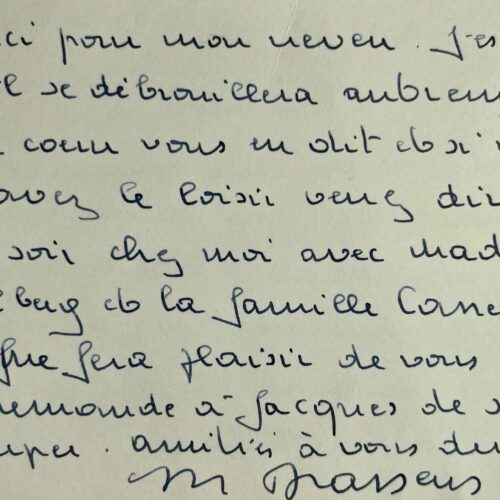 ci pour mon neveu. J'es
il se débrouillera autrem
coeur vous en dit et si v
avez le loisir venez dîn
soir chez moi avec mad
berg et la famille Corne
que fera plaisir de vous
demande à Jacques de s'
uper. amitiés à vous deu
M Brassens